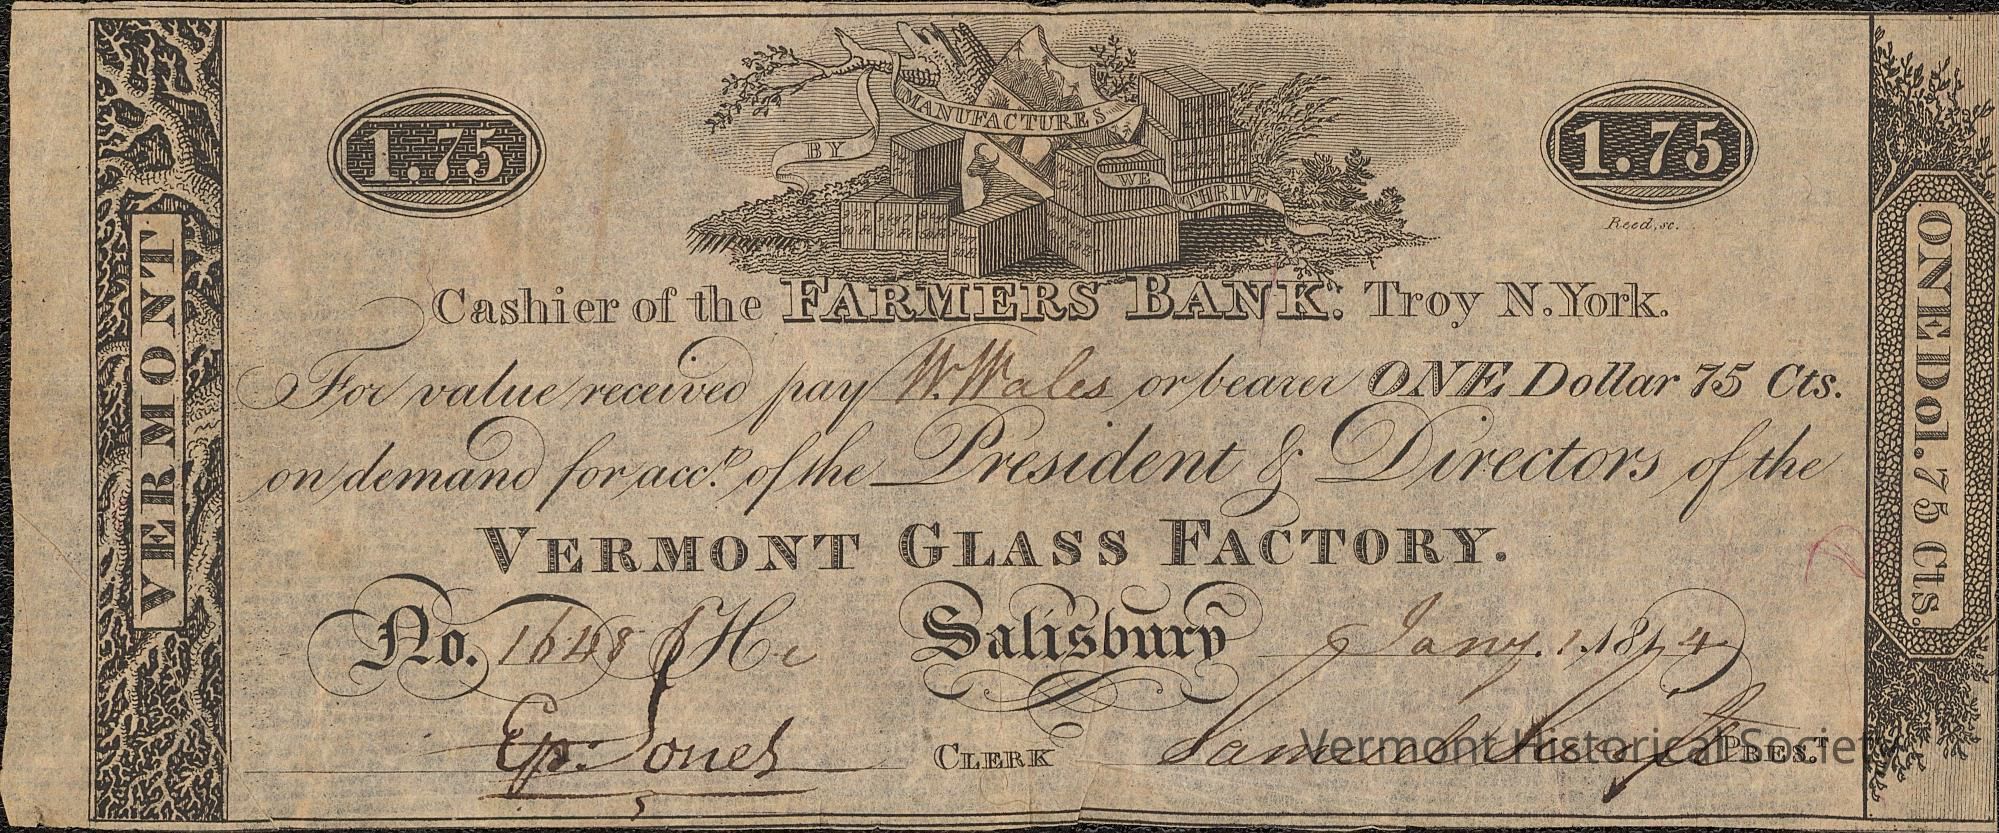 BY MANUFACTURES WE THRIVE
1.75
1.75
Reed, sc.
VERMONT
ONE Dol. 75 Cts.
Cashier of the FARMERS BANK. Troy N. York.
For value received pay W. Wales or bearer ONE Dollar 75 Cts.
on demand for acct. of the President & Directors of the
VERMONT GLASS FACTORY.
No. 1648 Salisbury Jany. 1. 1814
Ep. Jones CLERK Samuel Swift PREST.
Vermont Historical Society